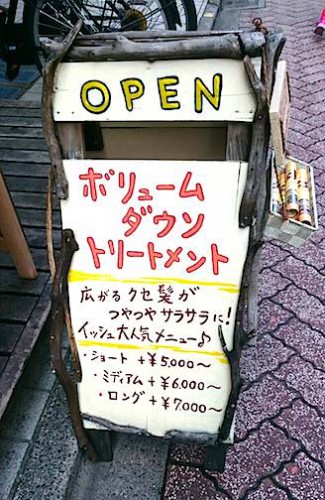 OPEN
ボリューム
ダウン
トリートメント
広がるクセ髪が
つやつやサラサラに!
イッシュ大人気メニュー♪
・ショート +¥5,000〜
・ミディアム +¥6,000〜
・ロング +¥7,000〜